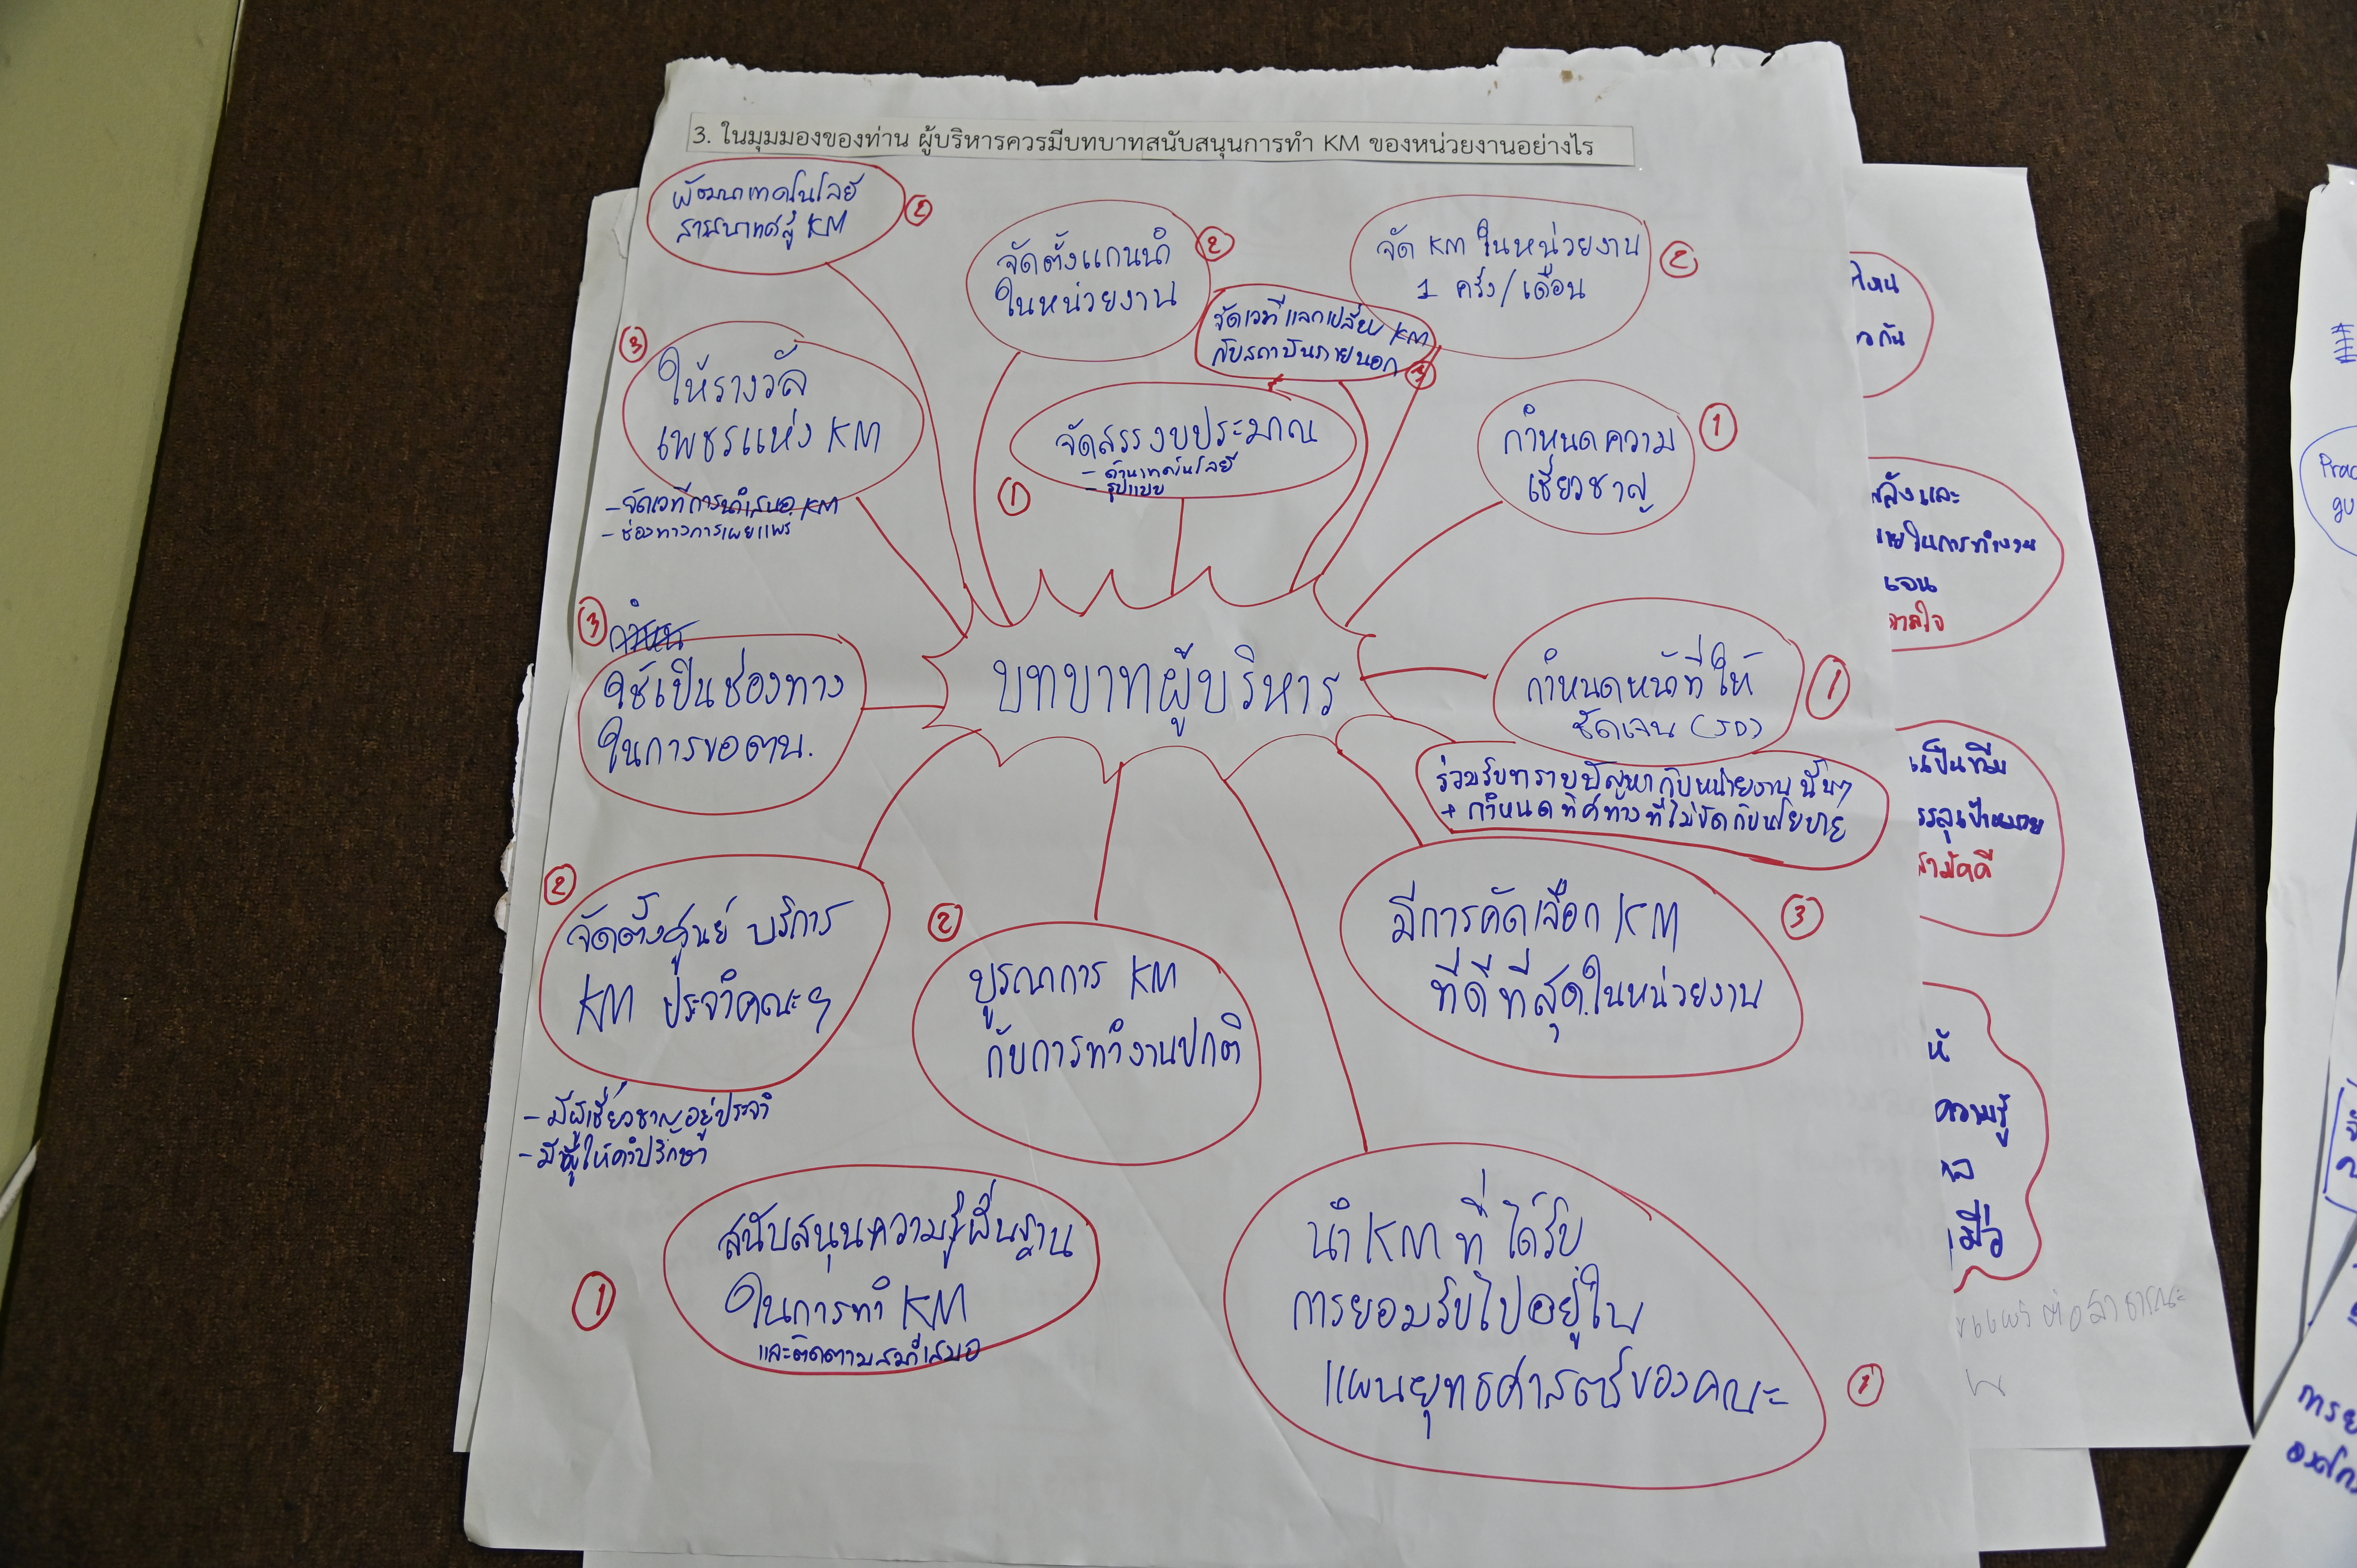 3. ในมุมมองของท่าน ผู้บริหารควรมีบทบาทสนับสนุนการทำ KM ของหน่วยงานอย่างไร
พัฒนาเทคโนโลยี
สารสนเทศสู่ KM
②
จัดตั้งแกนนำ
ในหน่วยงาน
②
จัด KM ในหน่วยงาน
1 ครั้ง/เดือน
②
จัดเวทีแลกเปลี่ยน KM
กับสถาบันภายนอก
③
③
ให้รางวัล
เพชรแห่ง KM
- จัดเวทีการนำเสนอ KM
- ช่องทางการเผยแพร่
จัดสรรงบประมาณ
- ด้านเทคโนโลยี
- รูปแบบ
①
กำหนดความ
เชี่ยวชาญ
①
③
ใช้เป็นช่องทาง
ในการขอตน.
บทบาทผู้บริหาร
กำหนดหน้าที่ให้
ชัดเจน (JD)
①
ร่วมรับทราบปัญหากับหน่วยงานนั้นๆ
+ กำหนดทิศทางที่ไม่ขัดกับนโยบาย
②
จัดตั้งศูนย์ บริการ
KM ประจำคณะฯ
- มีผู้เชี่ยวชาญอยู่ประจำ
- มีผู้ให้คำปรึกษา
②
บูรณาการ KM
กับการทำงานปกติ
มีการคัดเลือก KM
ที่ดีที่สุดในหน่วยงาน
③
①
สนับสนุนความรู้พื้นฐาน
ในการทำ KM
และติดตามสม่ำเสมอ
นำ KM ที่ได้รับ
การยอมรับไปอยู่ใน
แผนยุทธศาสตร์ของคณะ
①
วกัน
ลังและ
ายในการทำงาน
เจน
ภาคใจ
เป็นทีม
รรลุเป้าหมาย
สามัคคี
ห้
ความรู้
เมื่อ